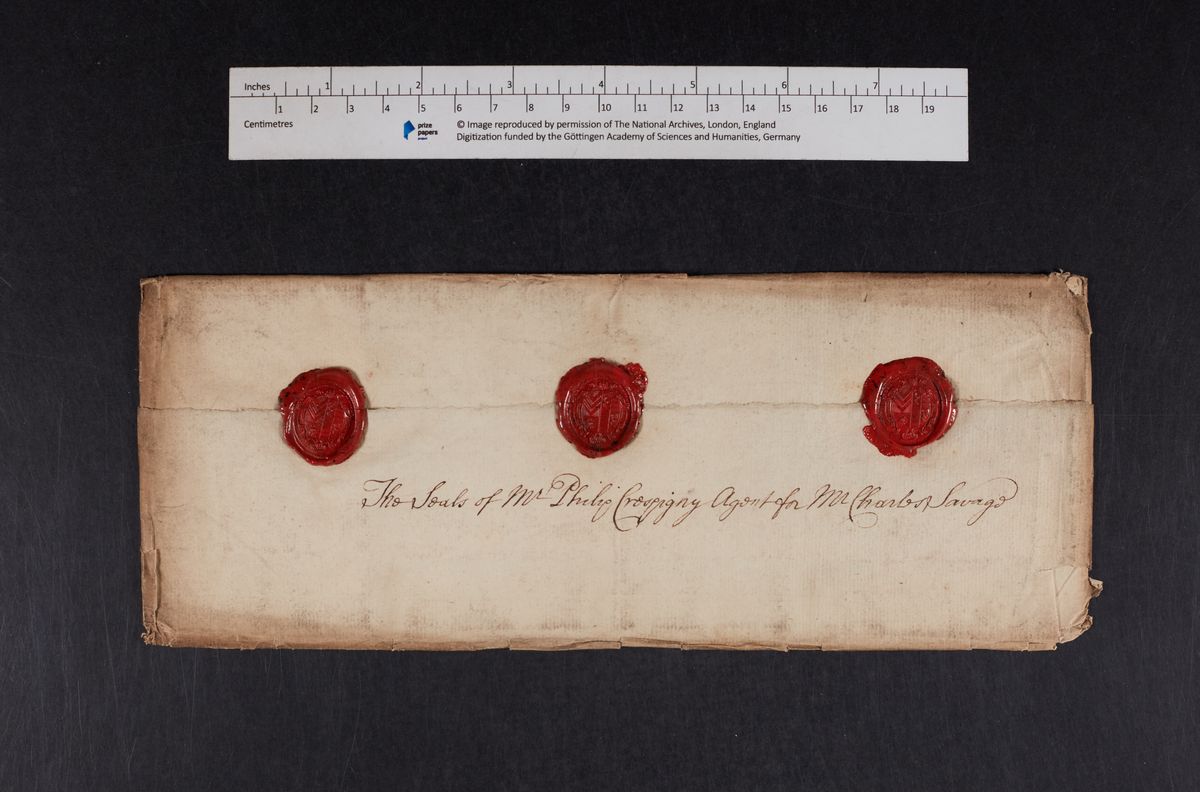 Inches 1 2 3 4 5 6 7
1 2 3 4 5 6 7 8 9 10 11 12 13 14 15 16 17 18 19
Centimetres
prize
papers
project
© Image reproduced by permission of The National Archives, London, England
Digitization funded by the Göttingen Academy of Sciences and Humanities, Germany
The Seals of Mr. Philip Crespigny Agent for Mr Charles Savage